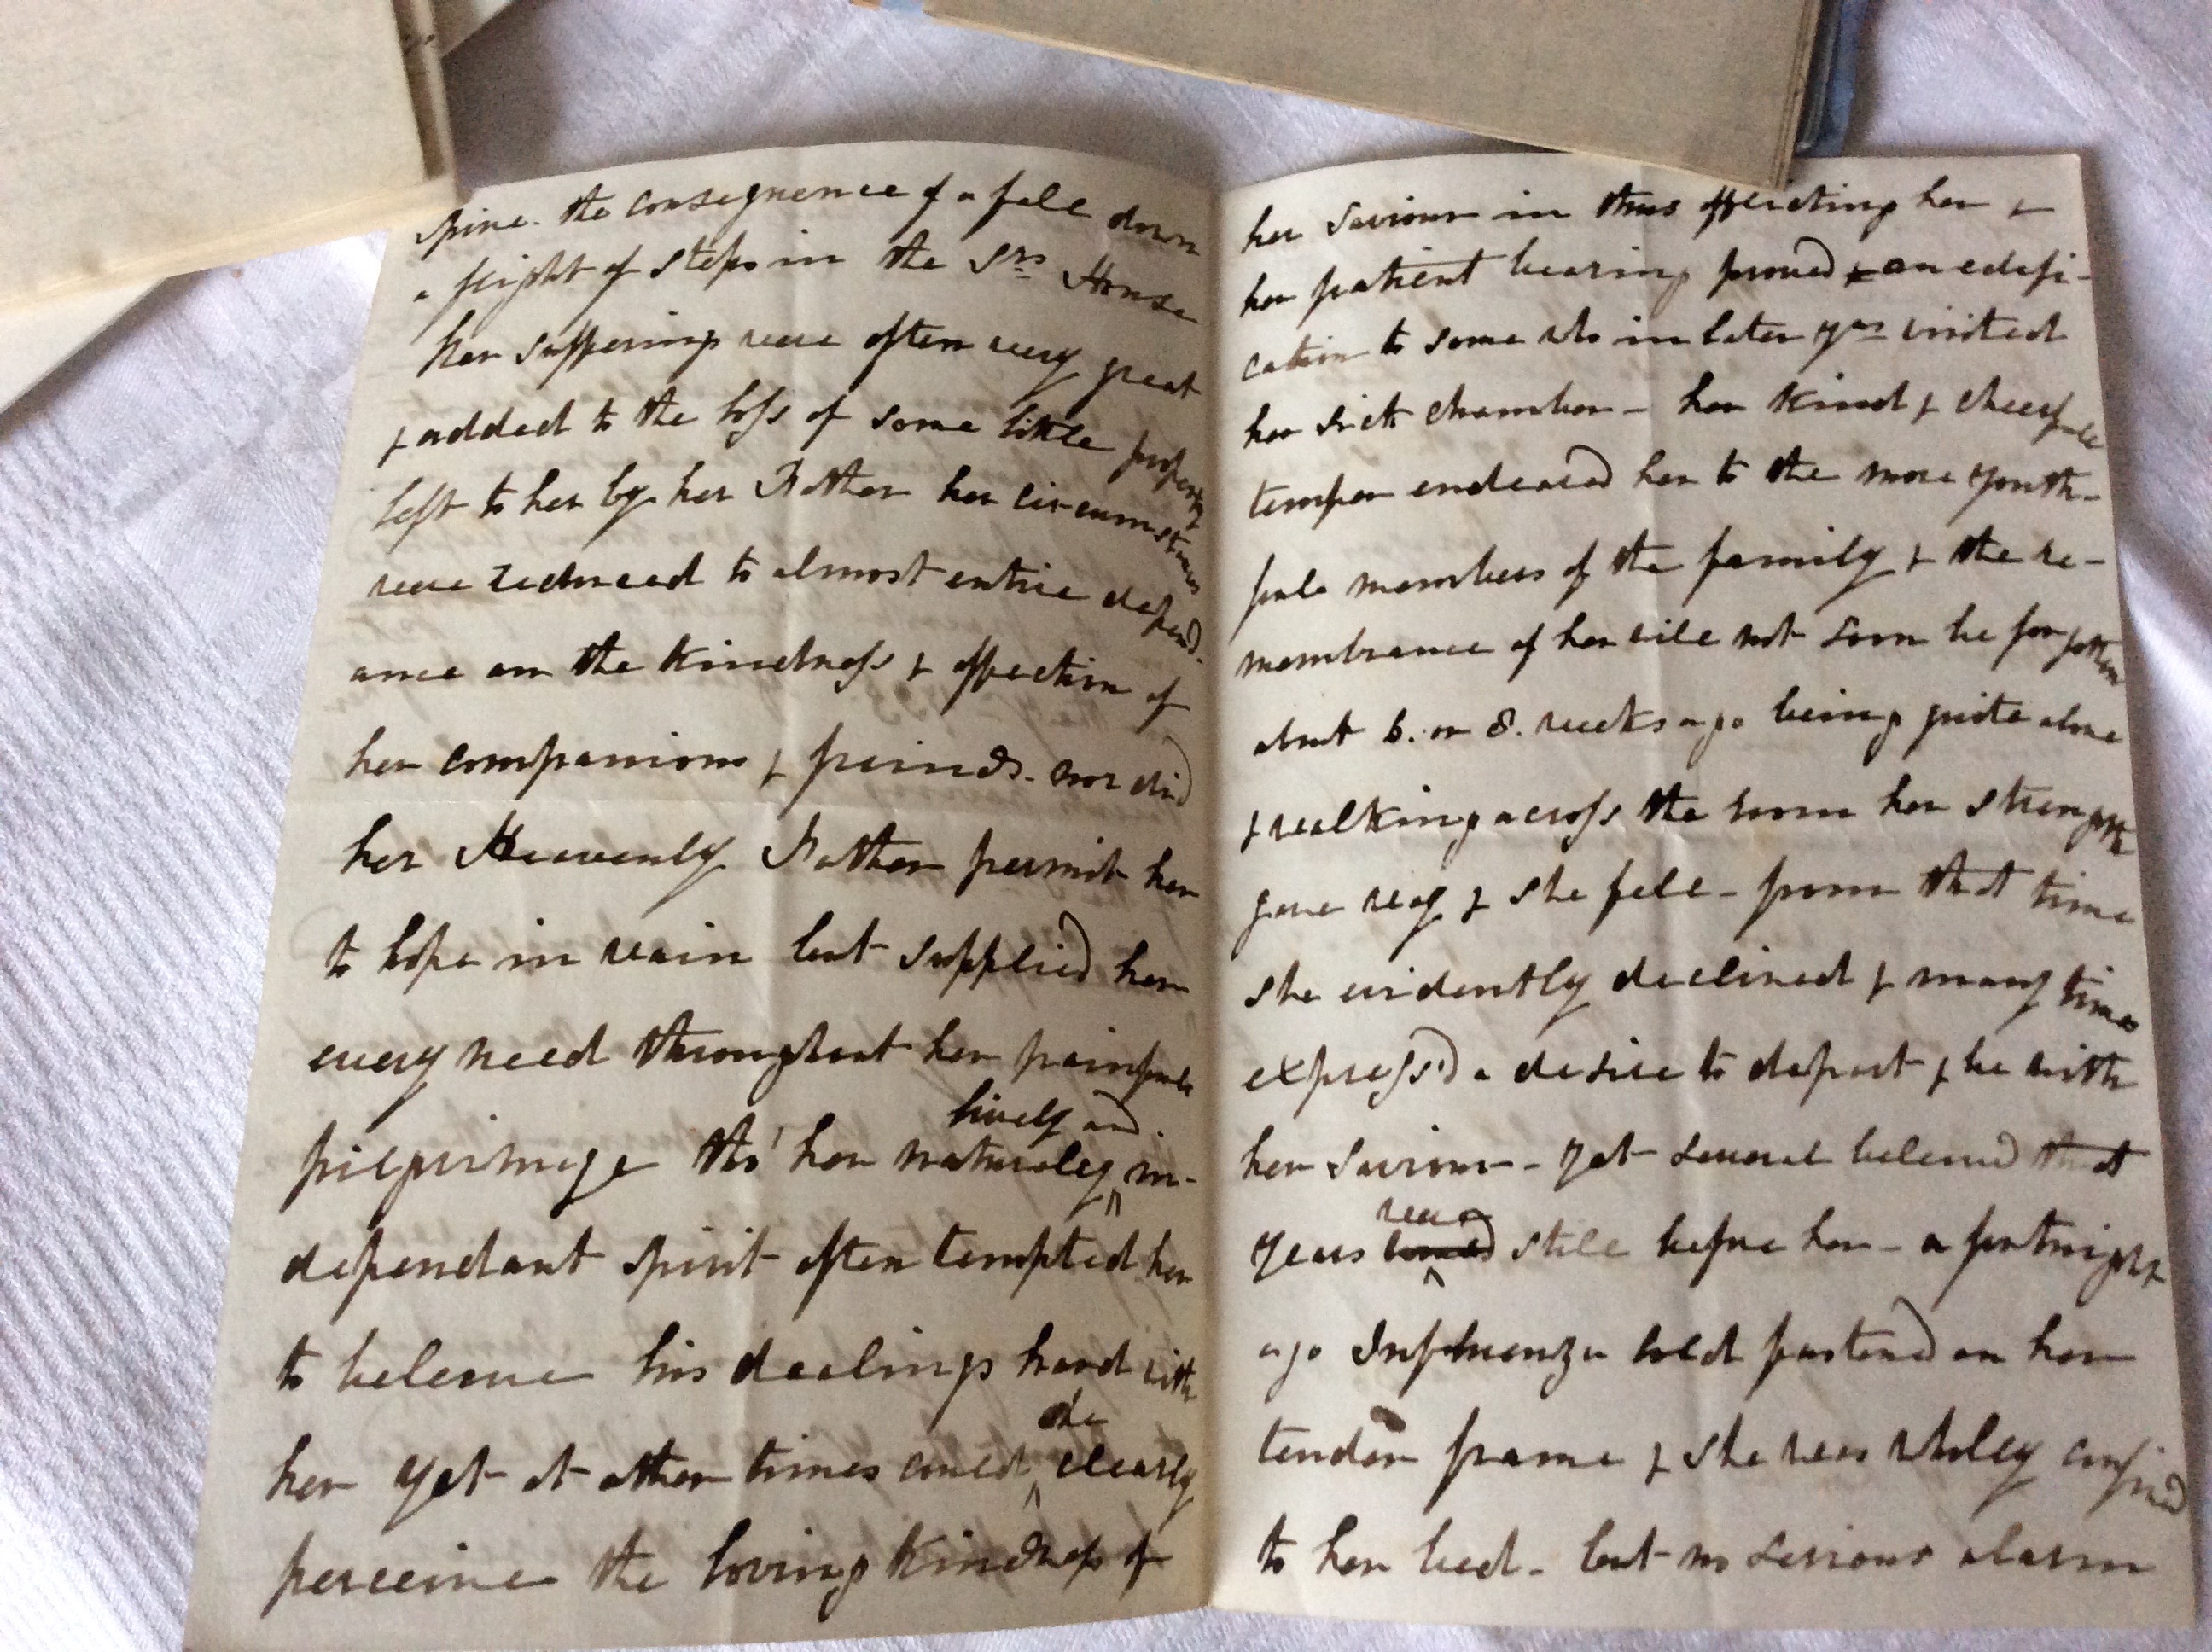 spine. the consequence of a fall down
a flight of steps in the Srs House
her sufferings were often very great
& added to the loss of some little property
left to her by her Father her circumstances
were reduced to almost entire depend-
ance on the kindness & affection of
her companions & friends. nor did
her Heavenly Father permit her
to hope in vain but supplied her
every need throughout her painful
pilgrimage tho' her naturaly lively and in-
dependant spirit often tempted her
to beleive his dealings hard with
her yet at other times could she clearly
perceive the loving kindness of
her Saviour in thus afflicting her &
her patient bearing proved an edifi-
cation to some who in later yrs visited
her sick chamber - her kind & cheerful
temper endeared her to the more youth-
ful members of the family & the re-
membrance of her will not soon be forgotten
about 6. or 8. weeks ago being quite alone
& walking across the room her strength
gave way & she fell - from that time
she evidently declined & many times
express'd a desire to depart & be with
her Saviour - yet several beleived that
years were still before her - a fortnight
ago Influenza cold fastened on her
tender frame & she was wholy confined
to her bed - but no serious alarm